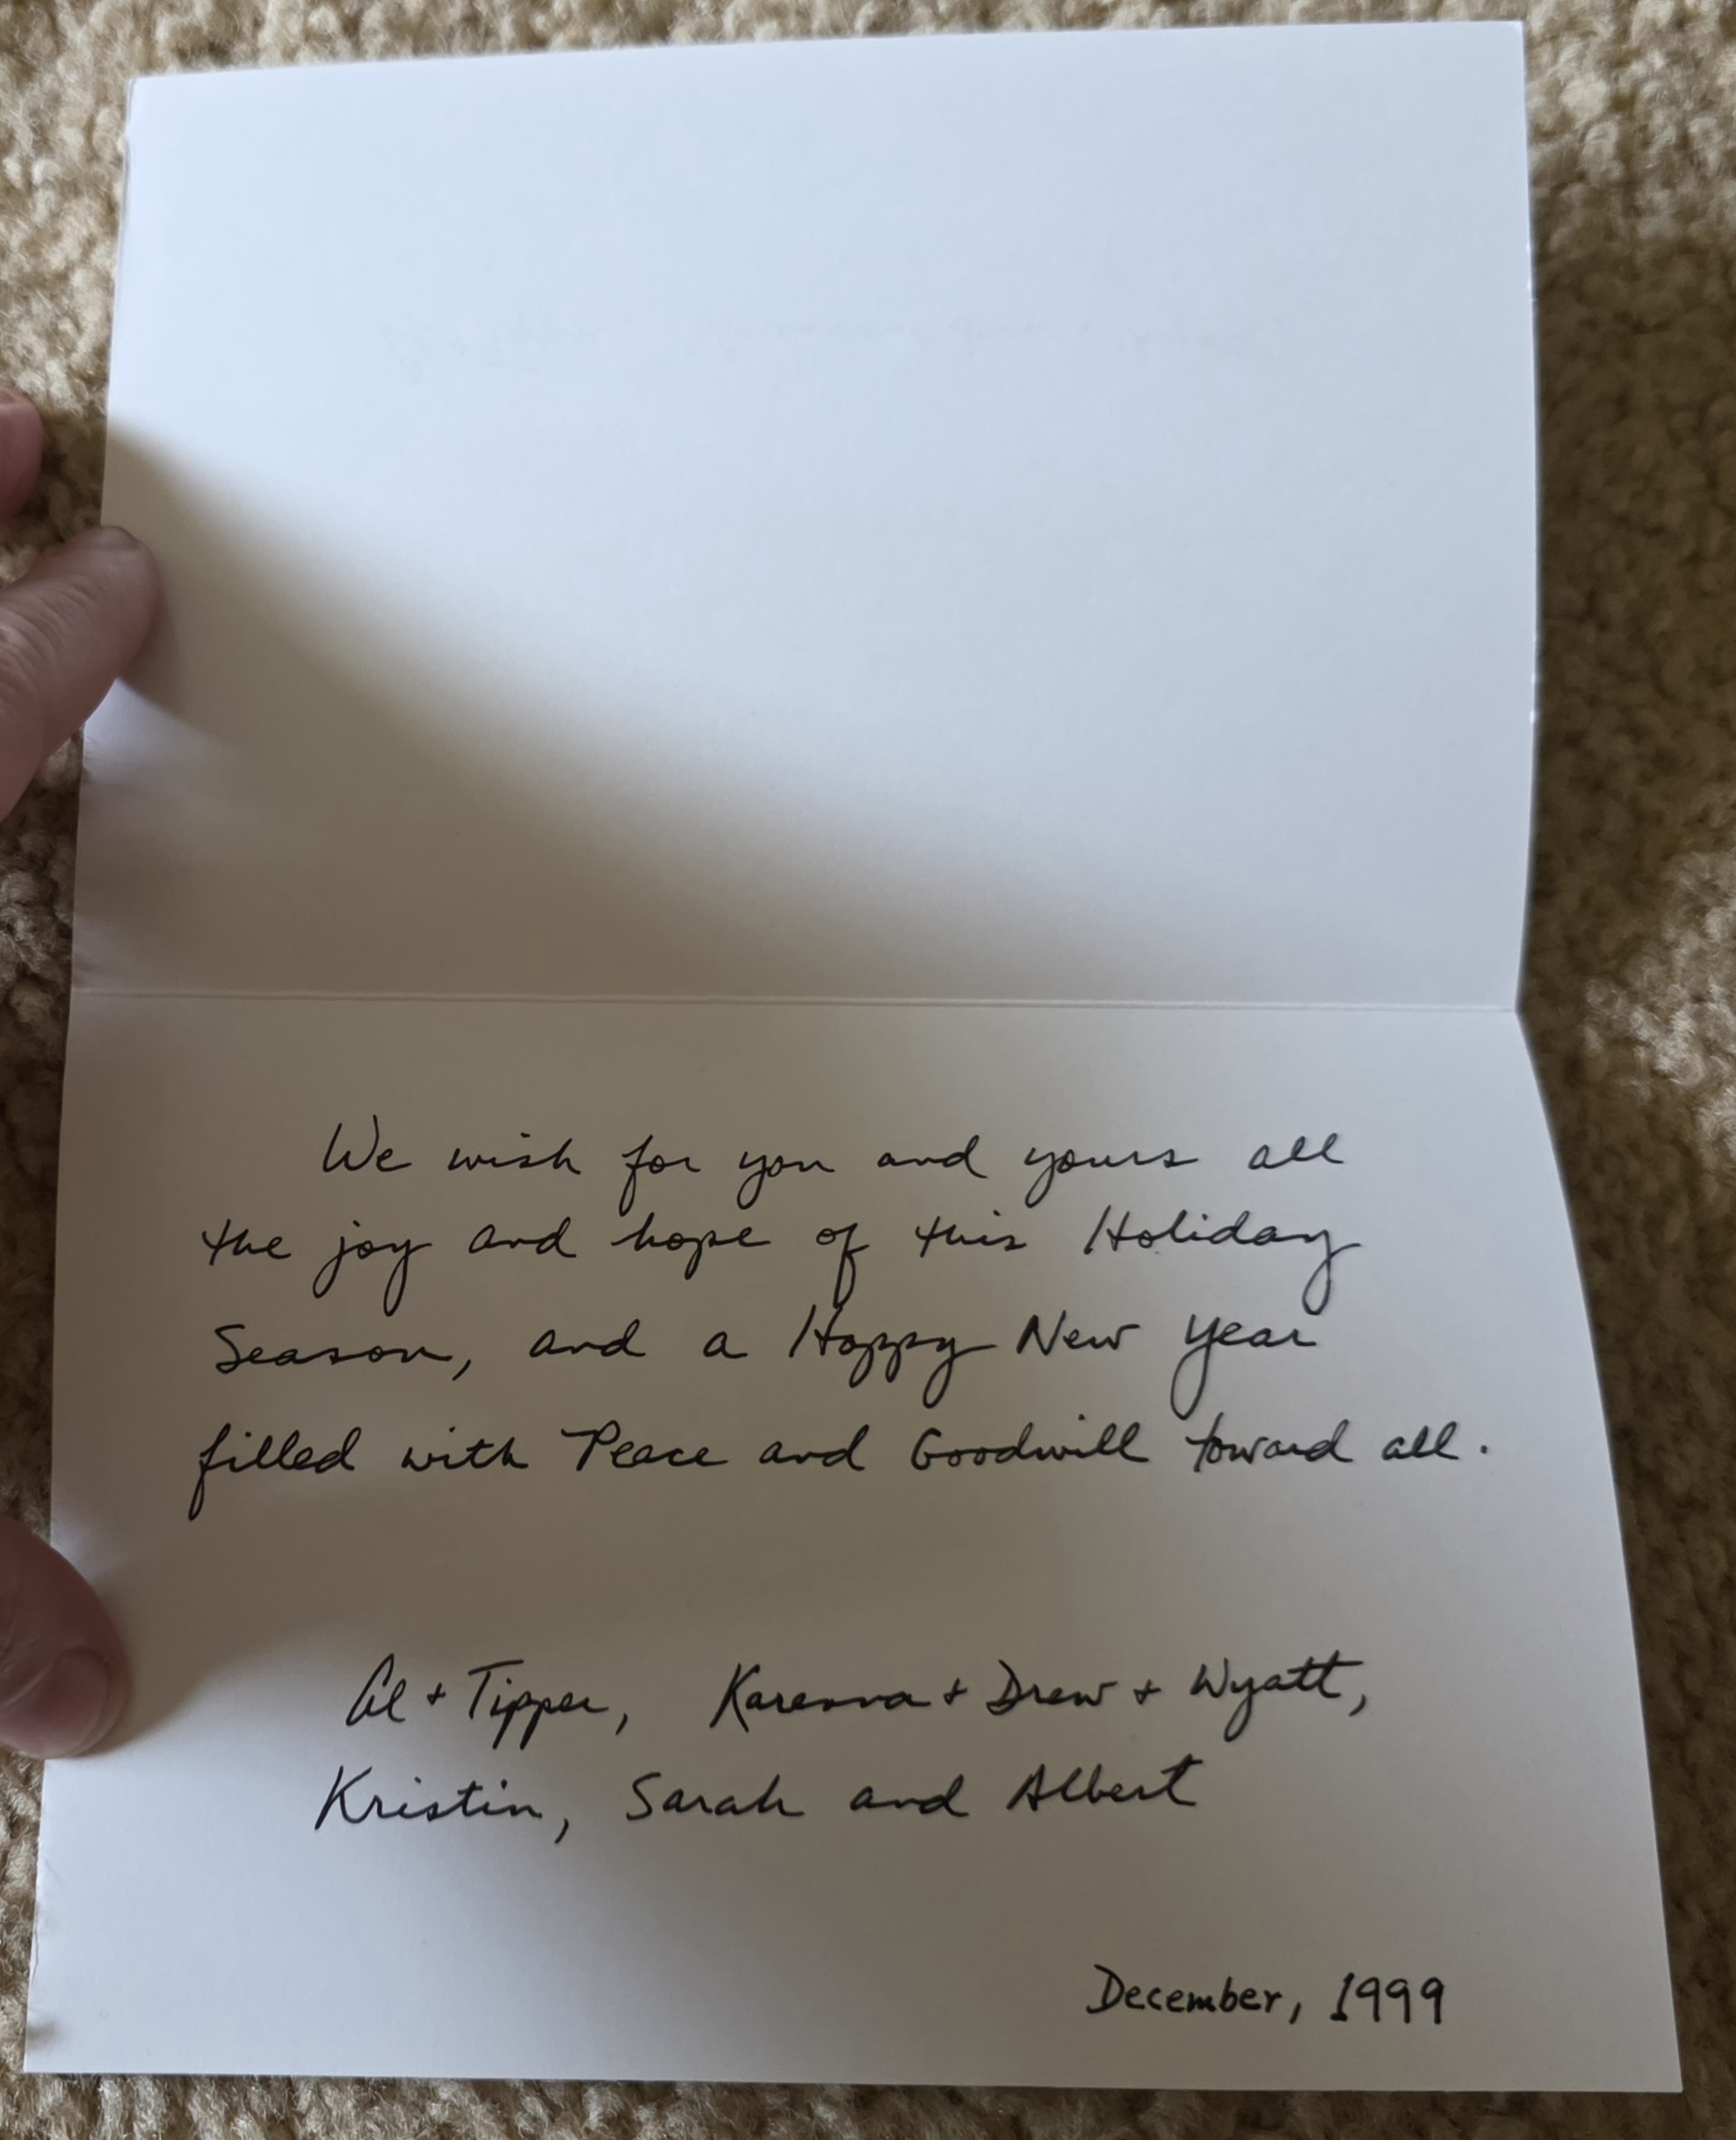 We wish for you and yours all
the joy and hope of this Holiday
Season, and a Happy New Year
filled with Peace and Goodwill toward all.
Al + Tipper, Karenna + Drew + Wyatt,
Kristin, Sarah and Albert
December, 1999